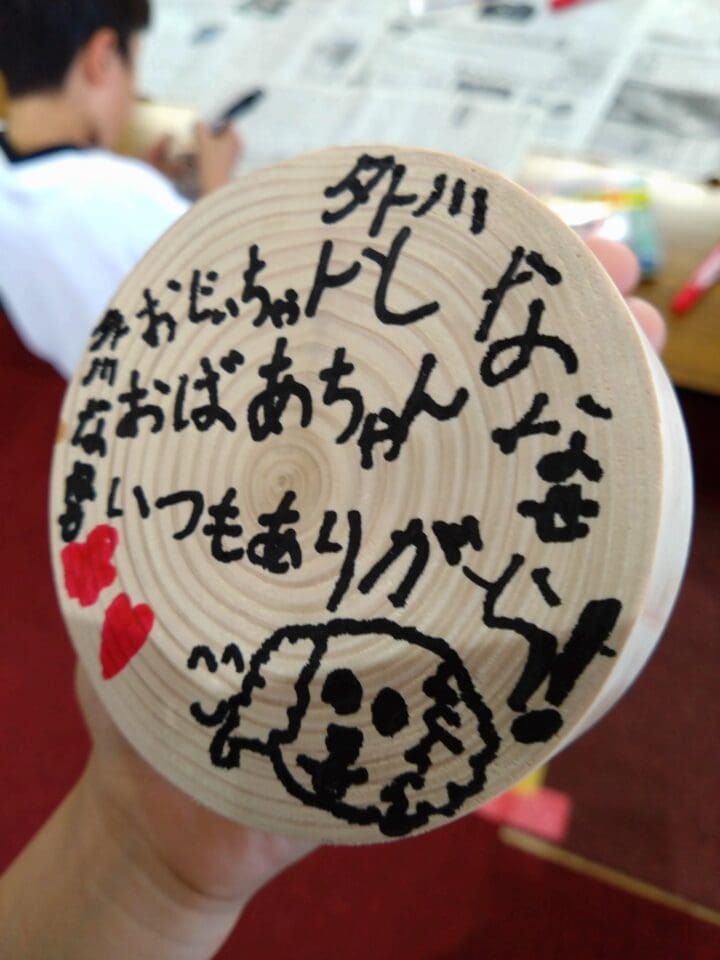 外川
ななせ
おじいちゃんと
おばあちゃん
いつもありがとう!!
外川